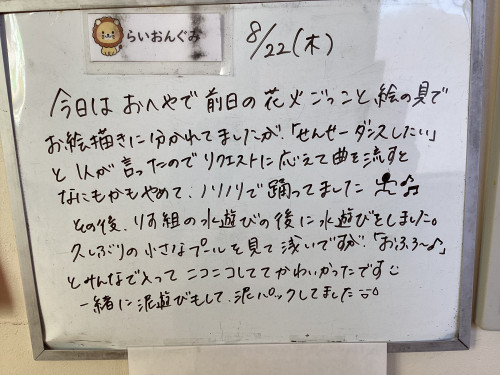 らいおんぐみ
8/22(木)
今日は おへやで 前日の 花火ごっこと 絵の具で
お絵描きに分かれてましたが、「せんせーダンスしたい」
と 1人が 言ったので リクエストに 応えて 曲を 流すと
なにもかもやめて、ノリノリで 踊ってました ♪♫
その後、りす組の水遊びの後に水遊びをしました。
久しぶりの 小さなプールを 見て 浅いですが、「おふろ〜♪」
とみんなで入って ニコニコしててかわいかったです
一緒に 泥遊びもして、泥パックしてました